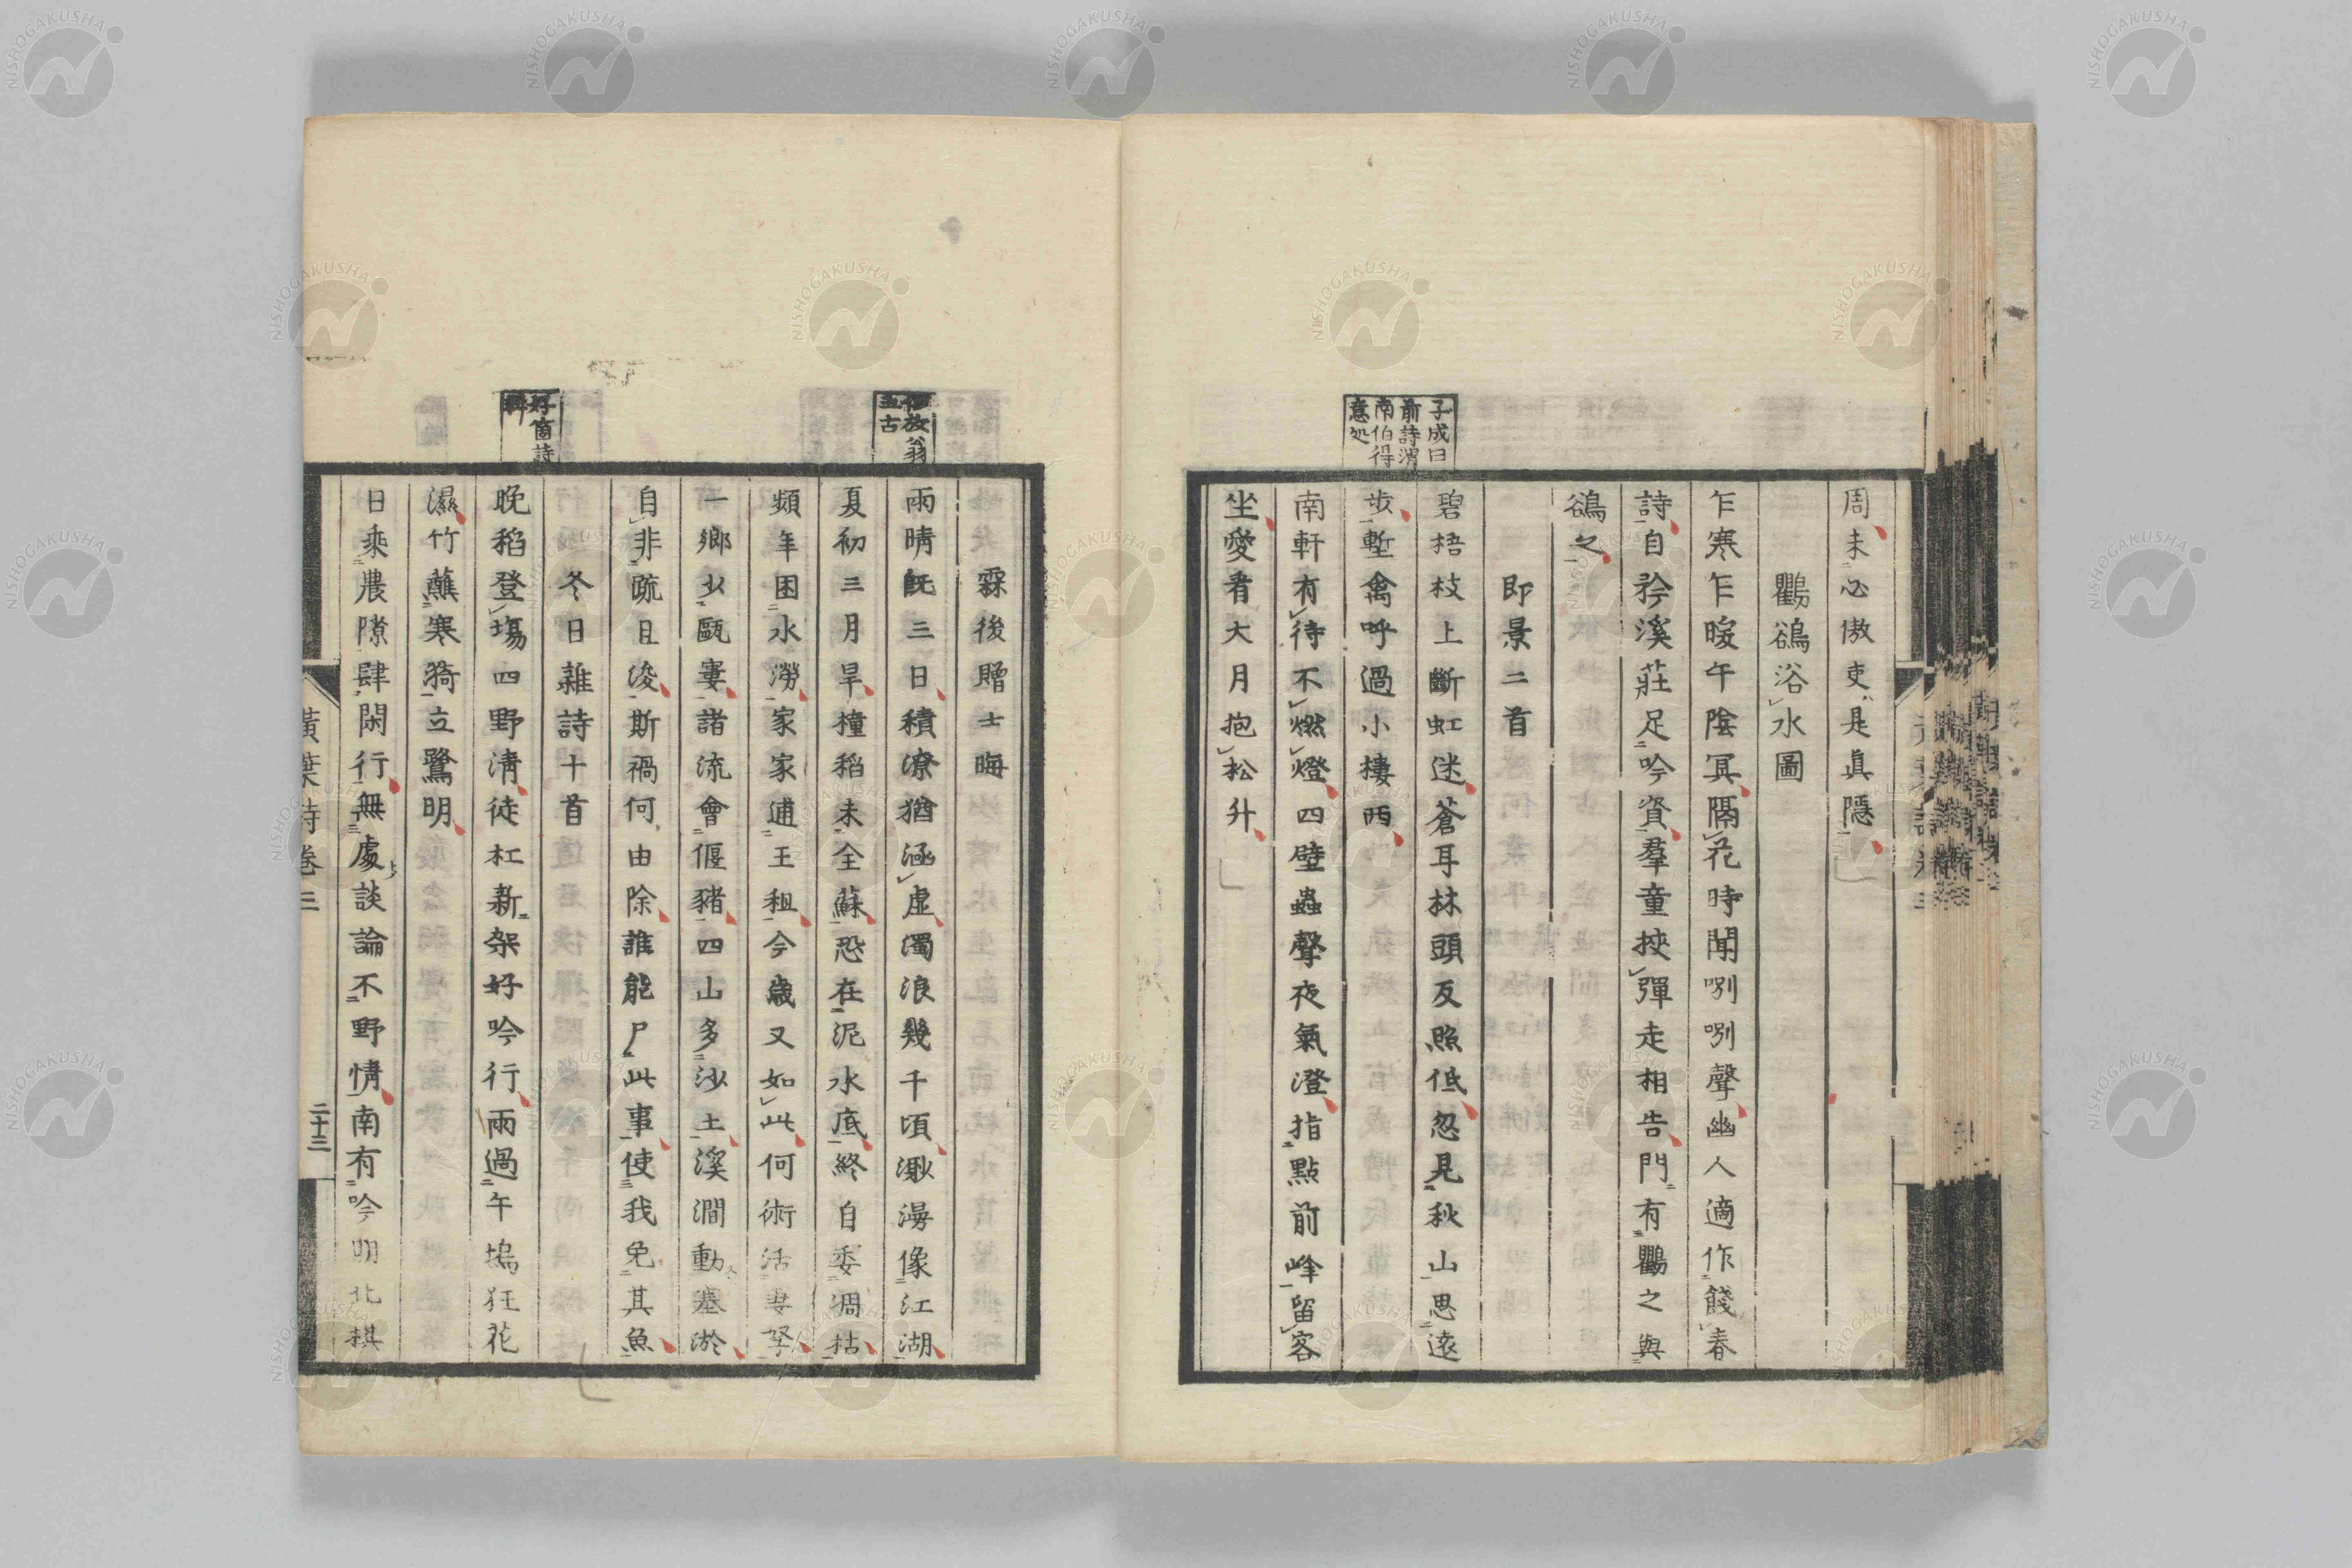 周未必傲吏是真隱
鸜鵒浴水圖
乍寒乍暖午陰冥隔花時聞咧咧聲幽人適作餞春
詩自矜溪莊足吟資羣童挾彈走相告門有鸜之與
鵒之
即景二首
子成曰
前詩渭
南伯得
意処
碧梧枝上斷虹迷蒼耳林頭反照低忽見秋山思遠
步蹔禽呼過小棲西
南軒有待不燃燈四壁蟲聲夜氣澄指點前峰留客
坐愛看大月抱松升
霖後贈士晦
放翁
五古
雨晴既三日積潦猶涵虛濁浪幾千頃渺漫像江湖
夏初三月旱橦稻未全蘇恐在泥水底終自委凋枯
頻年困水澇家家逋王租今歳又如此何術活妻孥
一鄉少甌窶諸流會偃豬四山多沙土溪澗動塞淤
自非疏且浚斯禍何由除誰能尸此事使我免其魚
冬日雜詩十首
好箇詩
料
晚稻登塲四野淸徒杠新架好吟行雨過午塢狂花
濕竹蘸寒漪立鷺明
日乘農隙肆閑行無處談論不野情南有吟朋北棋
黃葉詩卷三
二十三
NISHOGAKUSHA